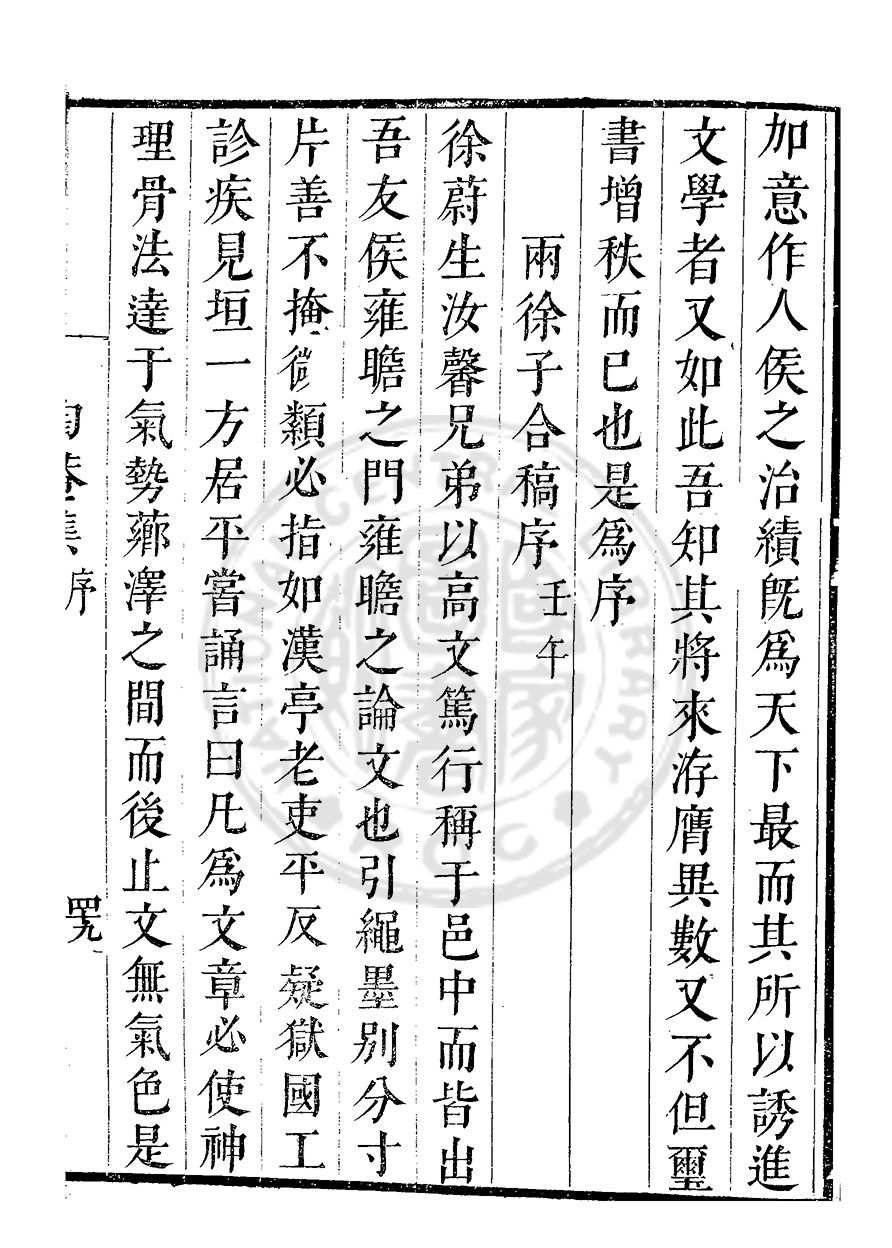 加意作人侯之治績旣爲天下最而其所以誘進
文學者又如此吾知其將來洊膺異數又不但璽
書增秩而已也是爲序
兩徐子合稿序 壬午
徐蔚生汝馨兄弟以高文篤行稱于邑中而皆出
吾友侯雍瞻之門雍瞻之論文也引繩墨別分寸
片善不掩微纇必指如漢亭老吏平反疑獄國工
診疾見垣一方居平嘗誦言曰凡爲文章必使神
理骨法達于氣勢薌澤之間而後止文無氣色是
陶菴集 序 四九